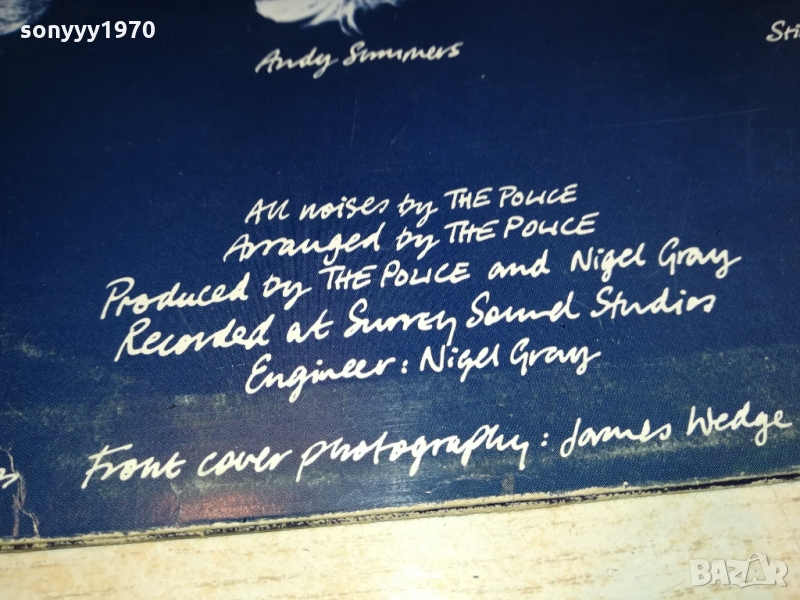 sonyyy1970
Andy Summers
Sti
All noises by THE POLICE
Arranged by THE POLICE
Produced by THE POLICE and Nigel Gray
Recorded at Surrey Sound Studios
Engineer: Nigel Gray
Front cover photography: James Wedge
BAZAR